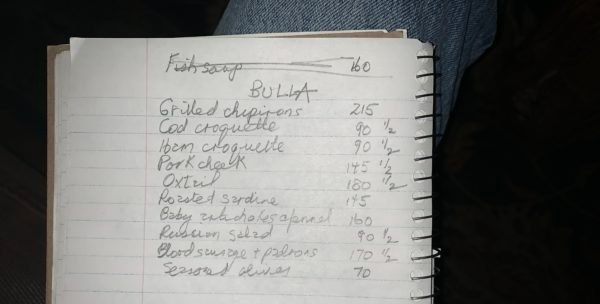 Fish soup 160
BULLA
Grilled chipirons 215
Cod croquette 90 1/2
Ham croquette 90 1/2
Pork cheek 145 1/2
Oxtail 180 1/2
Roasted sardine 145
Baby 160
Russian salad 90 1/2
Blood sausage + padrons 170 1/2
Seasoned olives 70